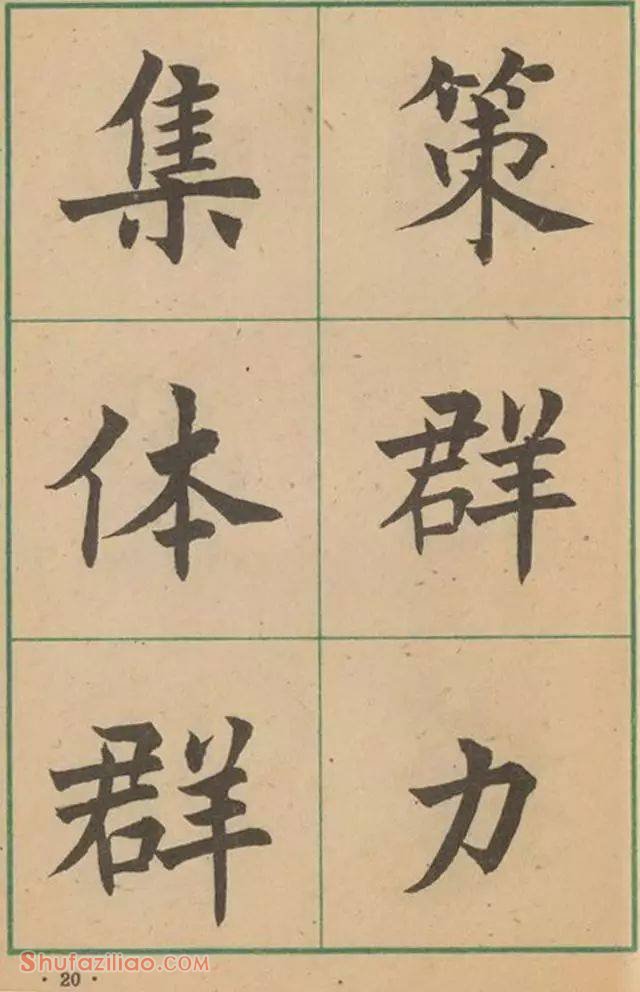 策群力
集体群
Shufaziliao.com
·20·